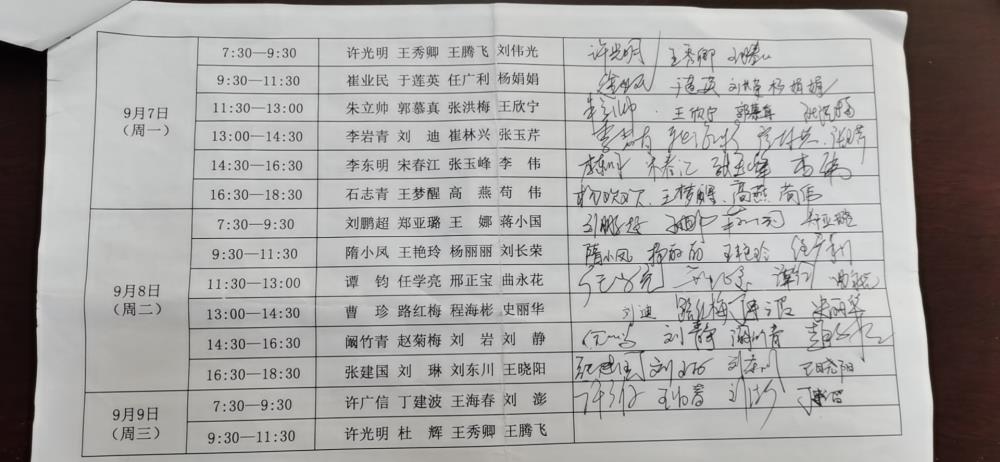 9月7日
（周一）
7:30—9:30 许光明 王秀卿 王腾飞 刘伟光 许光明 王秀卿
9:30—11:30 崔业民 于莲英 任广利 杨娟娟 刘长荣 杨娟娟
11:30—13:00 朱立帅 郭慕真 张洪梅 王欣宁 朱立帅 王欣宁 郭慕真 张洪梅
13:00—14:30 李岩青 刘　迪 崔林兴 张玉芹 李岩青 崔林兴 张玉芹
14:30—16:30 李东明 宋春江 张玉峰 李　伟 李东明 宋春江 张玉峰 李伟
16:30—18:30 石志青 王梦醒 高　燕 苟　伟 王梦醒 高燕 苟伟
9月8日
（周二）
7:30—9:30 刘鹏超 郑亚璐 王　娜 蒋小国 刘鹏超 郑亚璐
9:30—11:30 隋小凤 王艳玲 杨丽丽 刘长荣 隋小凤 杨丽丽 王艳玲 任广利
11:30—13:00 谭　钧 任学亮 邢正宝 曲永花 谭钧
13:00—14:30 曹　珍 路红梅 程海彬 史丽华 刘迪 路红梅 史丽华
14:30—16:30 阚竹青 赵菊梅 刘　岩 刘　静 刘静 阚竹青
16:30—18:30 张建国 刘　琳 刘东川 王晓阳 张建国 刘东川 王晓阳
9月9日
（周三）
7:30—9:30 许广信 丁建波 王海春 刘　澎 许广信 王海春 刘澎
9:30—11:30 许光明 杜　辉 王秀卿 王腾飞